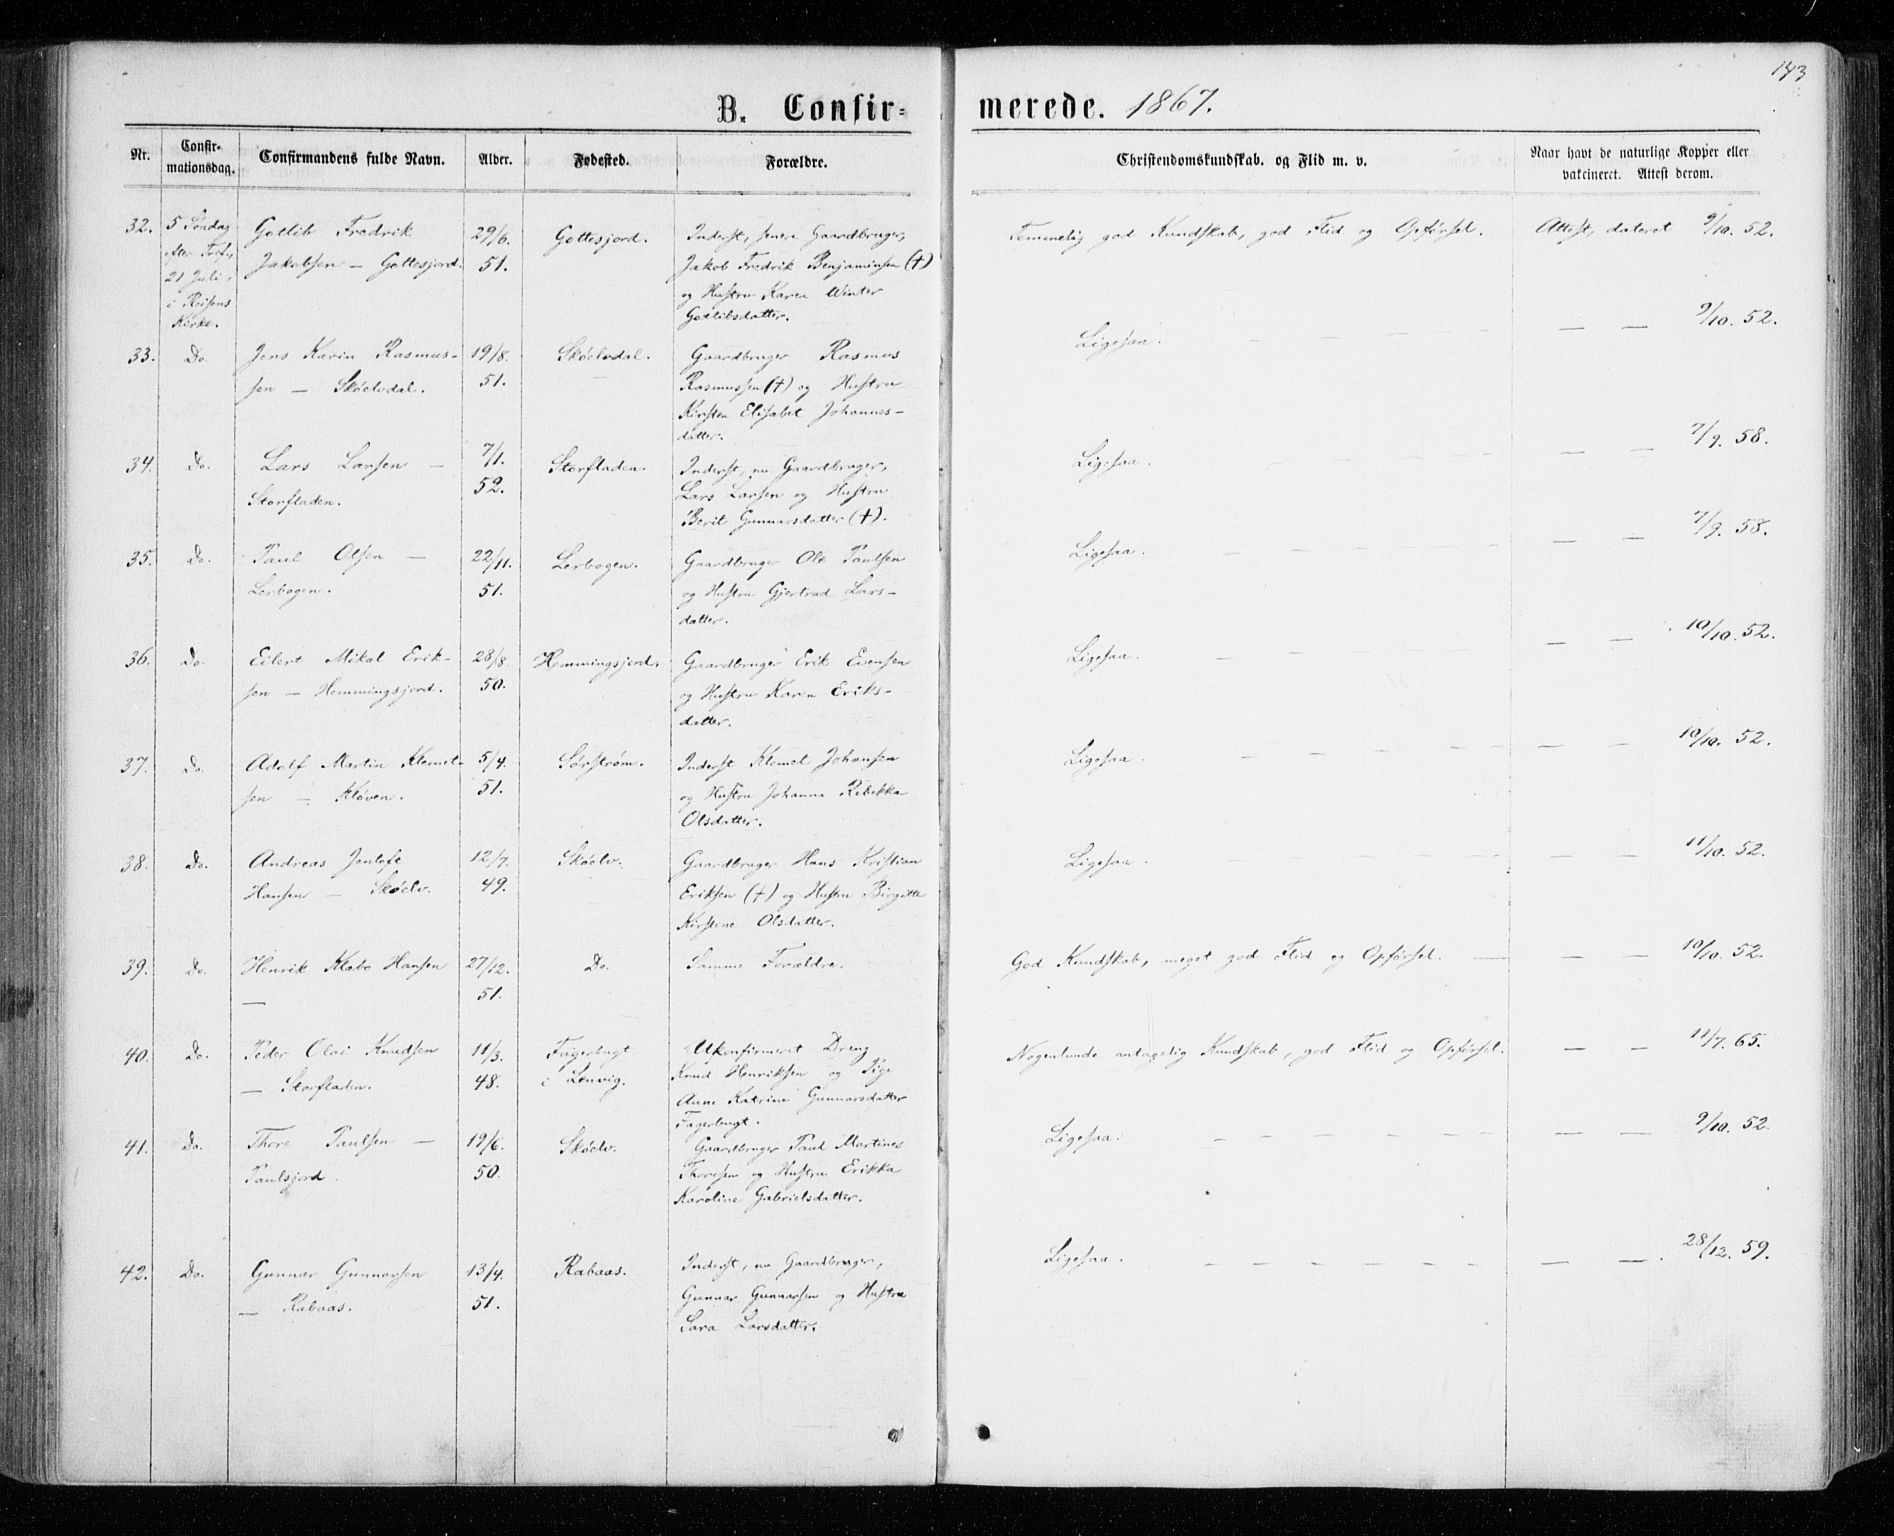 143
B. Confir- merede. 1867.
Nr.
Confir-
mationsdag.
Confirmandens fulde Navn.
Alder.
Fødested.
Forældre.
Christendomskundskab, og Flid m. v.
Naar havt de naturlige Kopper eller
vakcineret. Attest derom.
32. 5 Søndag Gotlib Fredrik 29/6. Gottesjord. Inderst, senere Gaardbruger, Temmelig god Kundskab, god Flid og Opførsel. Attest, dateret 9/10. 52.
efter Tref., Jakobsen — Gottesjord. 51. Jakob Fredrik Benjaminsen (†)
21 Juli, og Hustru Karen Winter
i Reisens Gotlibsdatter.
Kirke.
33. Do. Jens Karin Rasmus- 19/8. Skøelvdal. Gaardbruger Rasmus Ligesaa. — — 9/10. 52.
sen — Skøelvdal. 51. Rasmussen (†) og Hustru
Kirsten Elisabet Johannes-
datter.
34. Do. Lars Larsen — 7/1. Storfladen. Inderst, nu Gaardbruger, Ligesaa. — — 7/9. 58.
Storfladen. 52. Lars Larsen og Hustru
Berit Gunnarsdatter (†).
35. Do. Paul Olsen — 22/11. Lerbogen. Gaardbruger Ole Paulsen Ligesaa. — — 7/9. 58.
Lerbogen. 51. og Hustru Gjertrud Lars-
datter.
36. Do. Eilert Mikal Erik- 28/8. Hemmingsjord. Gaardbruger Erik Ligesaa. — — 10/10. 52.
sen — Hemmingsjord. 50. og Hustru Karen Eriks-
datter.
37. Do. Adolf Martin Klemet- 5/4. Sørstrøm. Inderst Klemet Johansen Ligesaa. — — 10/10. 52.
sen — Kløven. 51. og Hustru Johanna Rebekka
Olsdatter.
38. Do. Andreas Jentoft 12/7. Skøelv. Gaardbruger Hans Kristian Ligesaa. — — 11/10. 52.
Hansen — Skøelv. 49. Eriksen (†) og Hustru Birgitte
Kirstine Olsdatter.
39. Do. Henrik Klæbo Hansen 27/12. Do. Samme Forældre. God Kundskab, meget god Flid og Opførsel. — — 10/10. 52.
— 51.
40. Do. Peder Olai Knudsen 11/3. Fagerbugt Ukonfirmeret Dreng Nogenlunde antagelig Kundskab, god Flid og Opførsel. — — 11/7. 65.
— Storfladen. 48. i Lenvig. Knud Henriksen og Pige
Anne Katrine Gunnarsdatter
Fagerbugt.
41. Do. Thore Paulsen — 19/6. Skøelv. Gaardbruger Paul Martines Ligesaa. — — 9/10. 52.
Paulsjord. 50. Thoresen og Hustru Erikka
Karoline Gabrielsdatter.
42. Do. Gunnar Gunnarsen 13/4. Rabaas. Inderst, nu Gaardbruger, Ligesaa. — — 28/12. 59.
— Rabaas. 51. Gunnar Gunnarsen og Hustru
Sara Larsdatter.